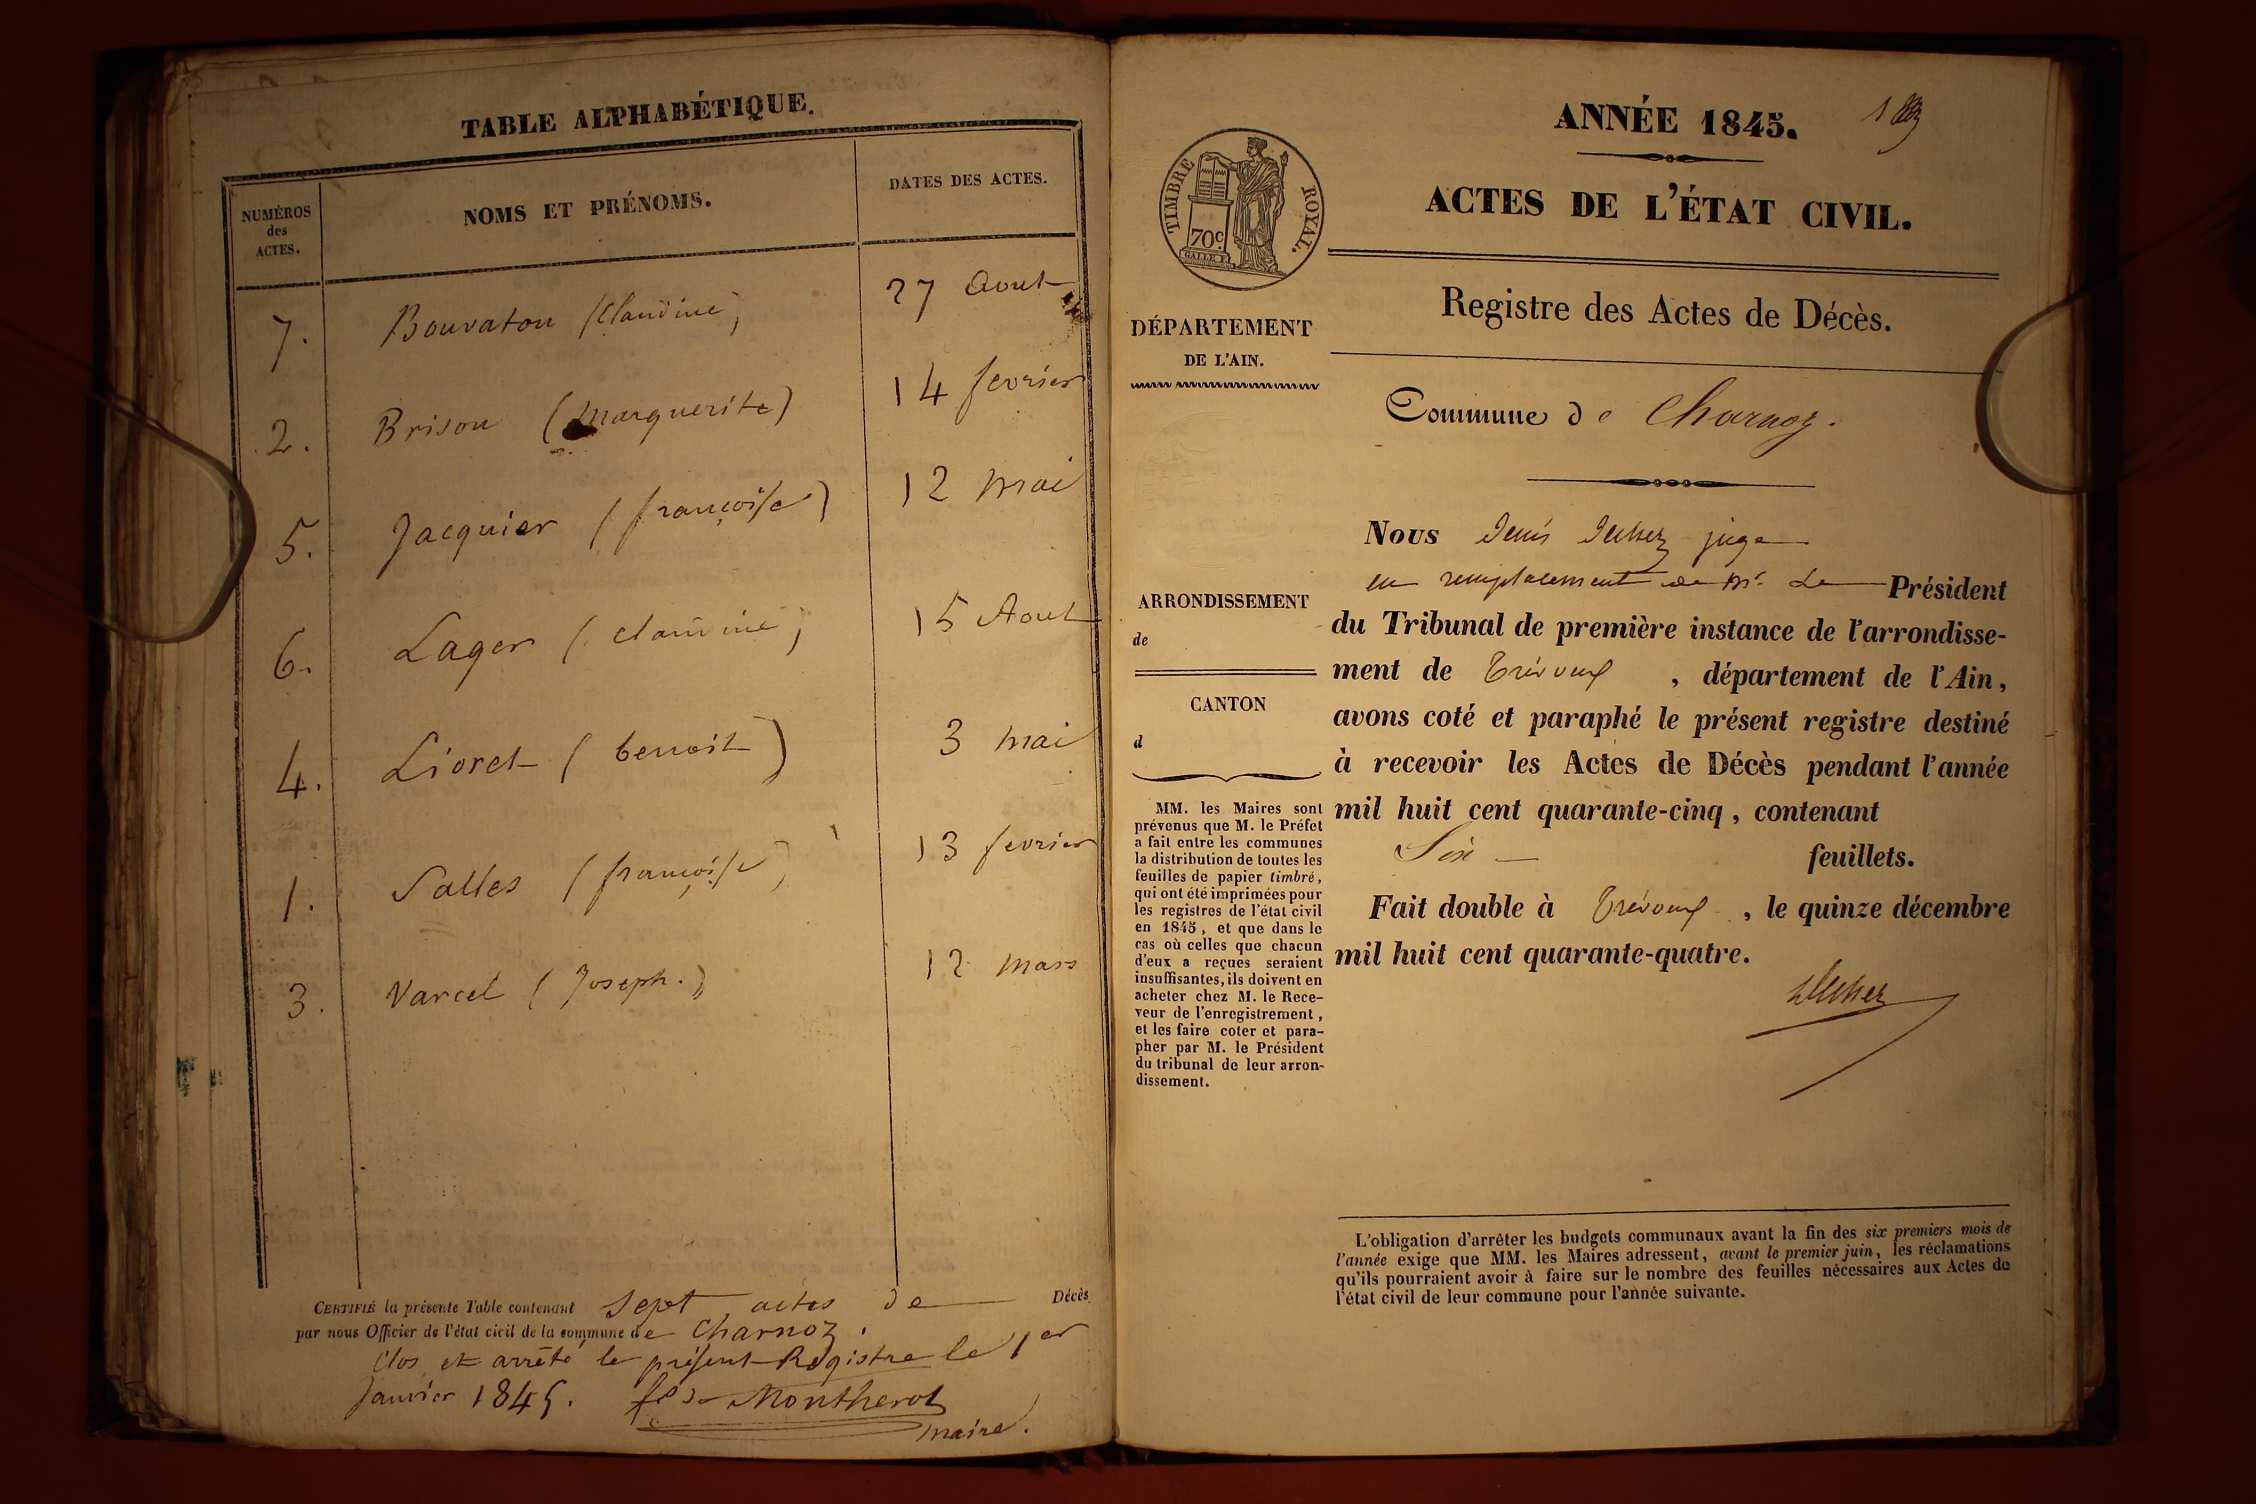 TABLE ALPHABÉTIQUE.
NUMÉROS
des
ACTES.
NOMS ET PRÉNOMS.
DATES DES ACTES.
7. Bouvaton (Claudine) 27 Aout
2. Brison (Marguerite) 14 fevrier
5. Jacquier (françoise) 12 mai
6. Lager (claudine) 15 Aout
4. Lioret (benoit) 3 mai
1. Salles (françoise) 13 fevrier
3. Varcel (Joseph.) 12 mars
CERTIFIÉ la présente Table contenant Sept actes de Décès
par nous Officier de l'état civil de la commune de Charnoz.
Clos et arrêté le présent Registre le 1er
Janvier 1845. de Montherot
maire.
ANNÉE 1845.
1
ACTES DE L'ÉTAT CIVIL.
TIMBRE ROYAL.
70c
GALLE F.
DÉPARTEMENT
DE L'AIN.
Registre des Actes de Décès.
Commune de Charnoz.
ARRONDISSEMENT
de
CANTON
d
MM. les Maires sont
prévenus que M. le Préfet
a fait entre les communes
la distribution de toutes les
feuilles de papier timbré,
qui ont été imprimées pour
les registres de l'état civil
en 1845, et que dans le
cas où celles que chacun
d'eux a reçues seraient
insuffisantes, ils doivent en
acheter chez M. le Rece-
veur de l'enregistrement,
et les faire coter et para-
pher par M. le Président
du tribunal de leur arron-
dissement.
Nous Denis juge
en remplacement de Mr. Le Président
du Tribunal de première instance de l'arrondisse-
ment de Trévoux, département de l'Ain,
avons coté et paraphé le présent registre destiné
à recevoir les Actes de Décès pendant l'année
mil huit cent quarante-cinq, contenant
Six feuillets.
Fait double à Trévoux, le quinze décembre
mil huit cent quarante-quatre.
L'obligation d'arrêter les budgets communaux avant la fin des six premiers mois de
l'année exige que MM. les Maires adressent, avant le premier juin, les réclamations
qu'ils pourraient avoir à faire sur le nombre des feuilles nécessaires aux Actes de
l'état civil de leur commune pour l'année suivante.